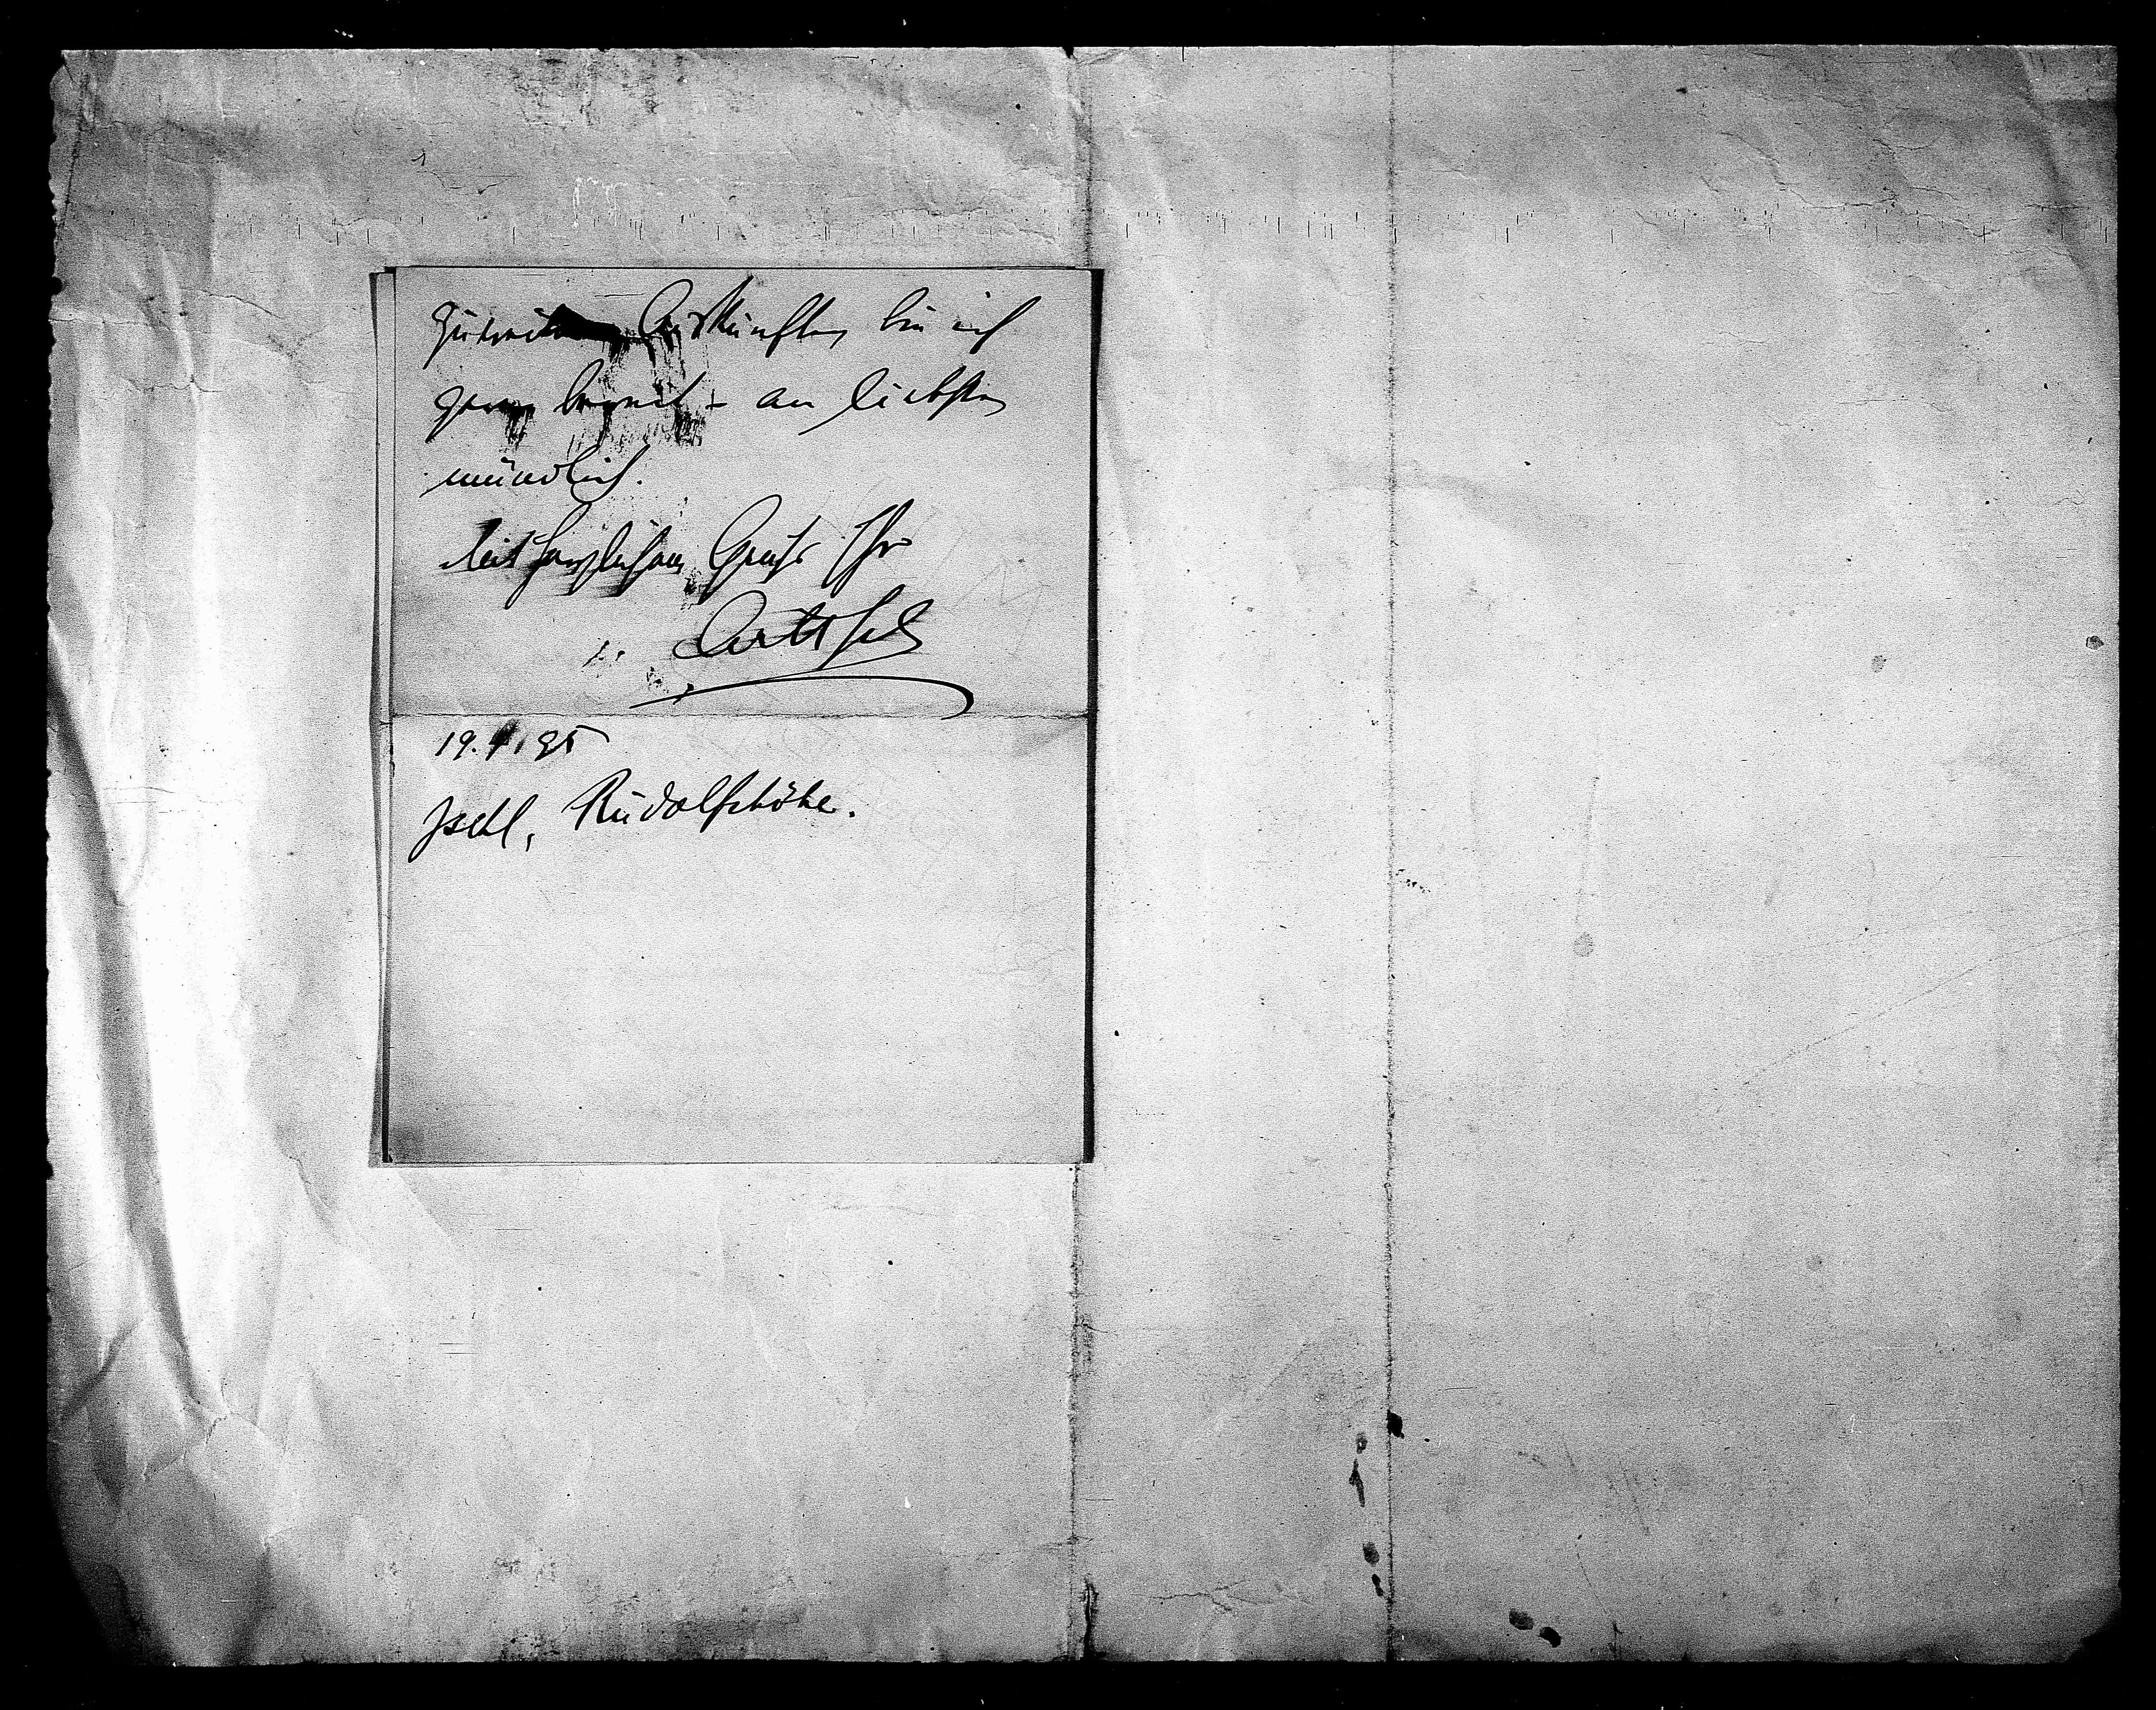 Zu weiteren Auskünften bin ich
gern bereit – am liebsten
mündlich.
Mit herzlichem Gruß Ihr
ArthSch
19. 95
Ischl, Rudolfshöhe.